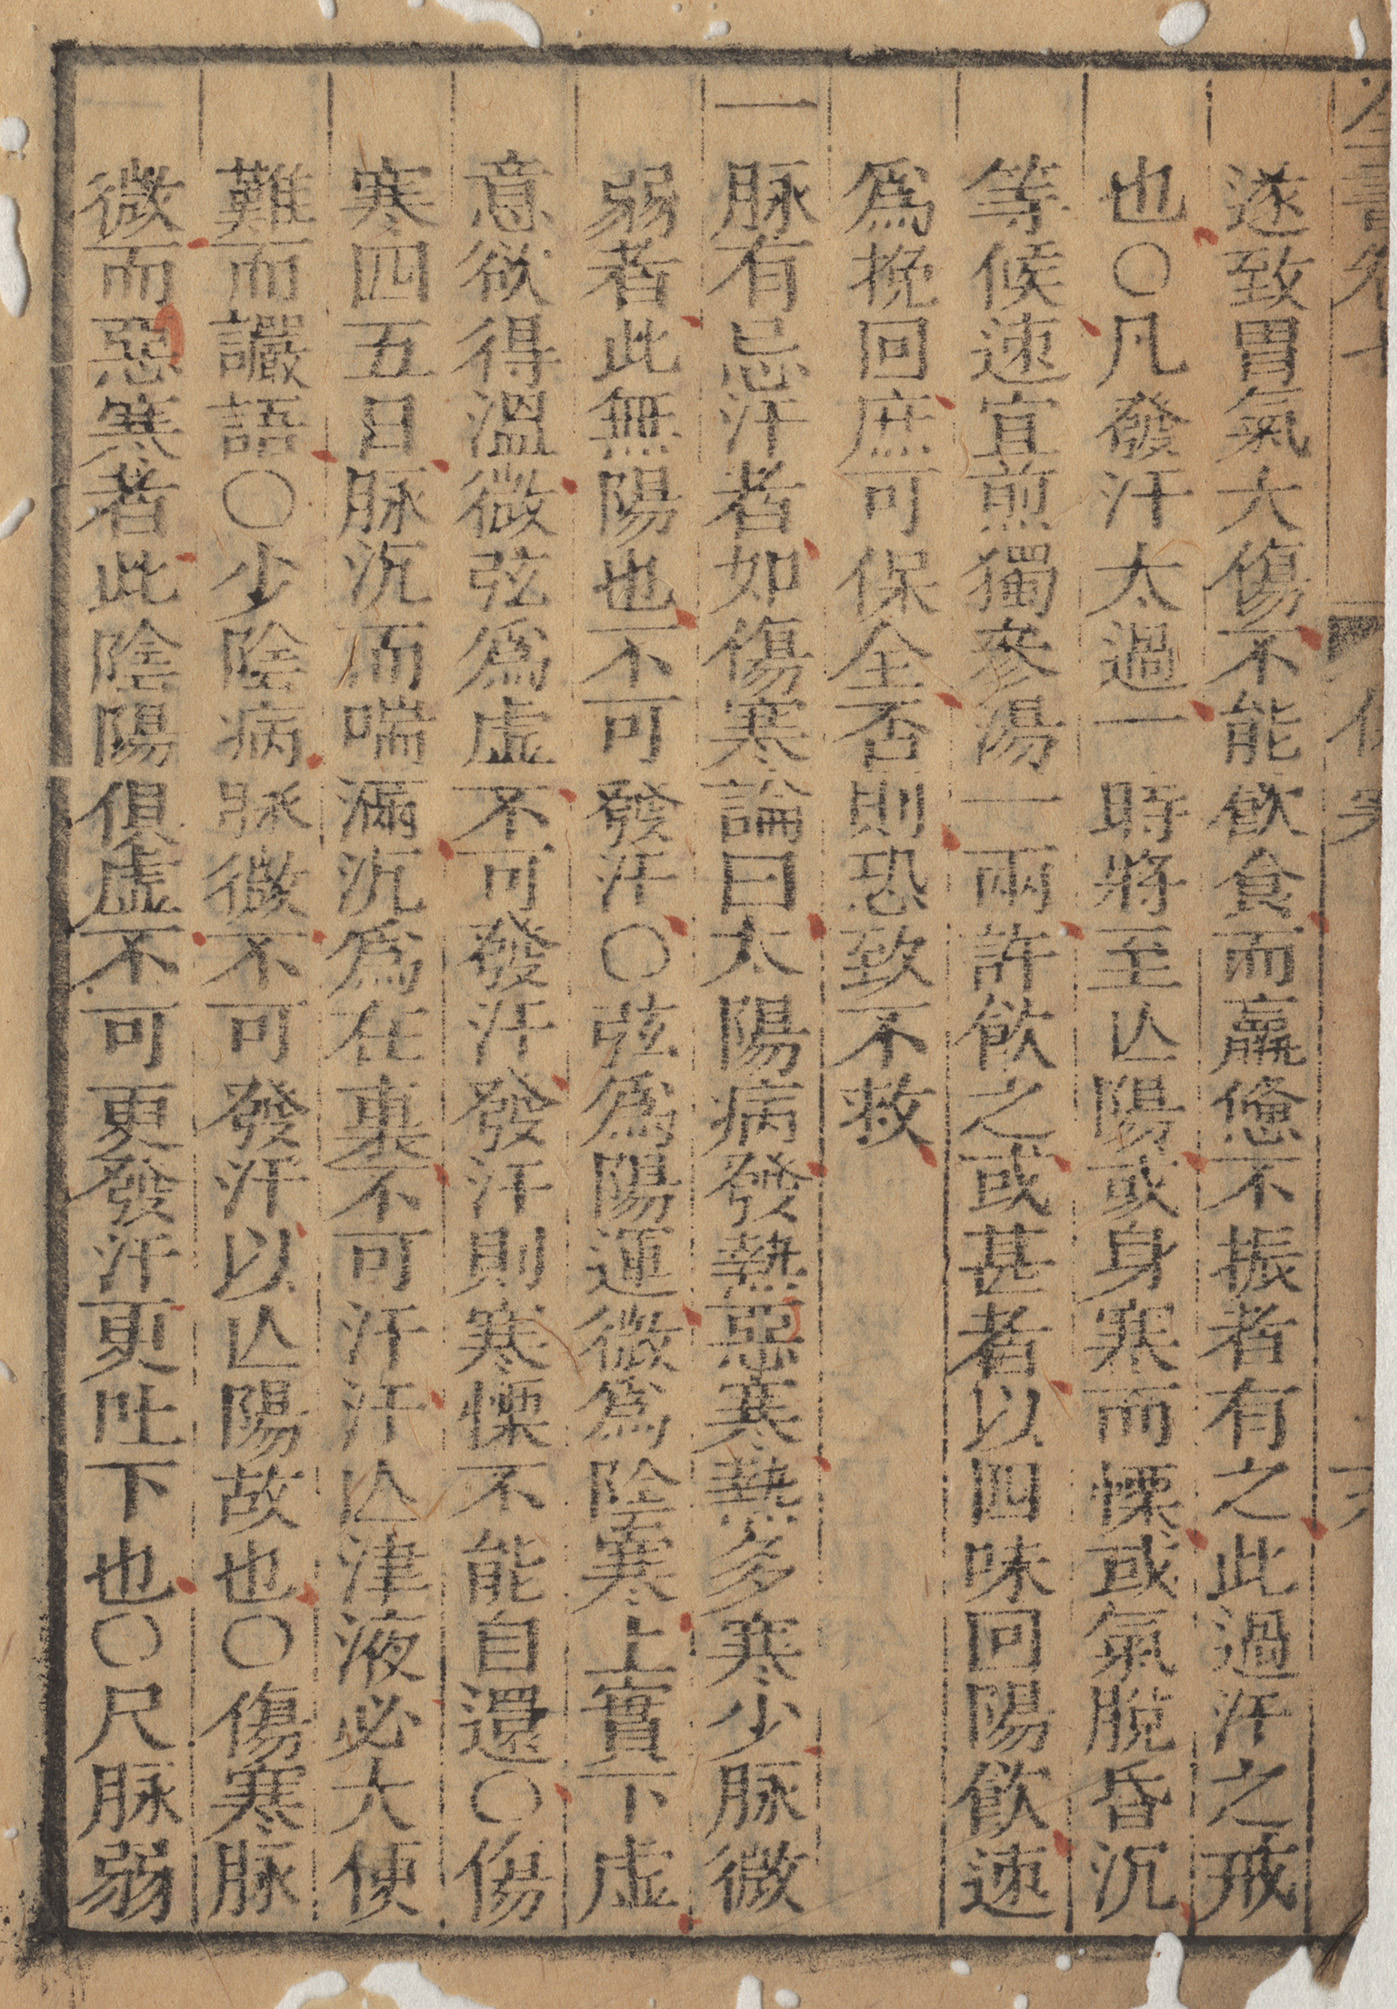 遂致胃氣大傷不能飲食而羸憊不振者有之此過汗之戒
也〇凡發汗太過一時將至亾陽或身寒而慄或氣脫昏沉
等候速宜煎獨參湯一兩許飲之或甚者以四味回陽飲速
爲挽回庶可保全否則恐致不救
一脉有忌汗者如傷寒論曰太陽病發熱惡寒熱多寒少脉微
弱者此無陽也不可發汗〇弦爲陽運微爲陰寒上實下虛
意欲得溫微弦爲虛不可發汗發汗則寒慄不能自還〇傷
寒四五日脉沉而喘滿沉爲在裏不可汗汗亾津液必大便
難而讝語〇少陰病脉微不可發汗以亾陽故也〇傷寒脉
微而惡寒者此陰陽俱虛不可更發汗更吐下也〇尺脉弱